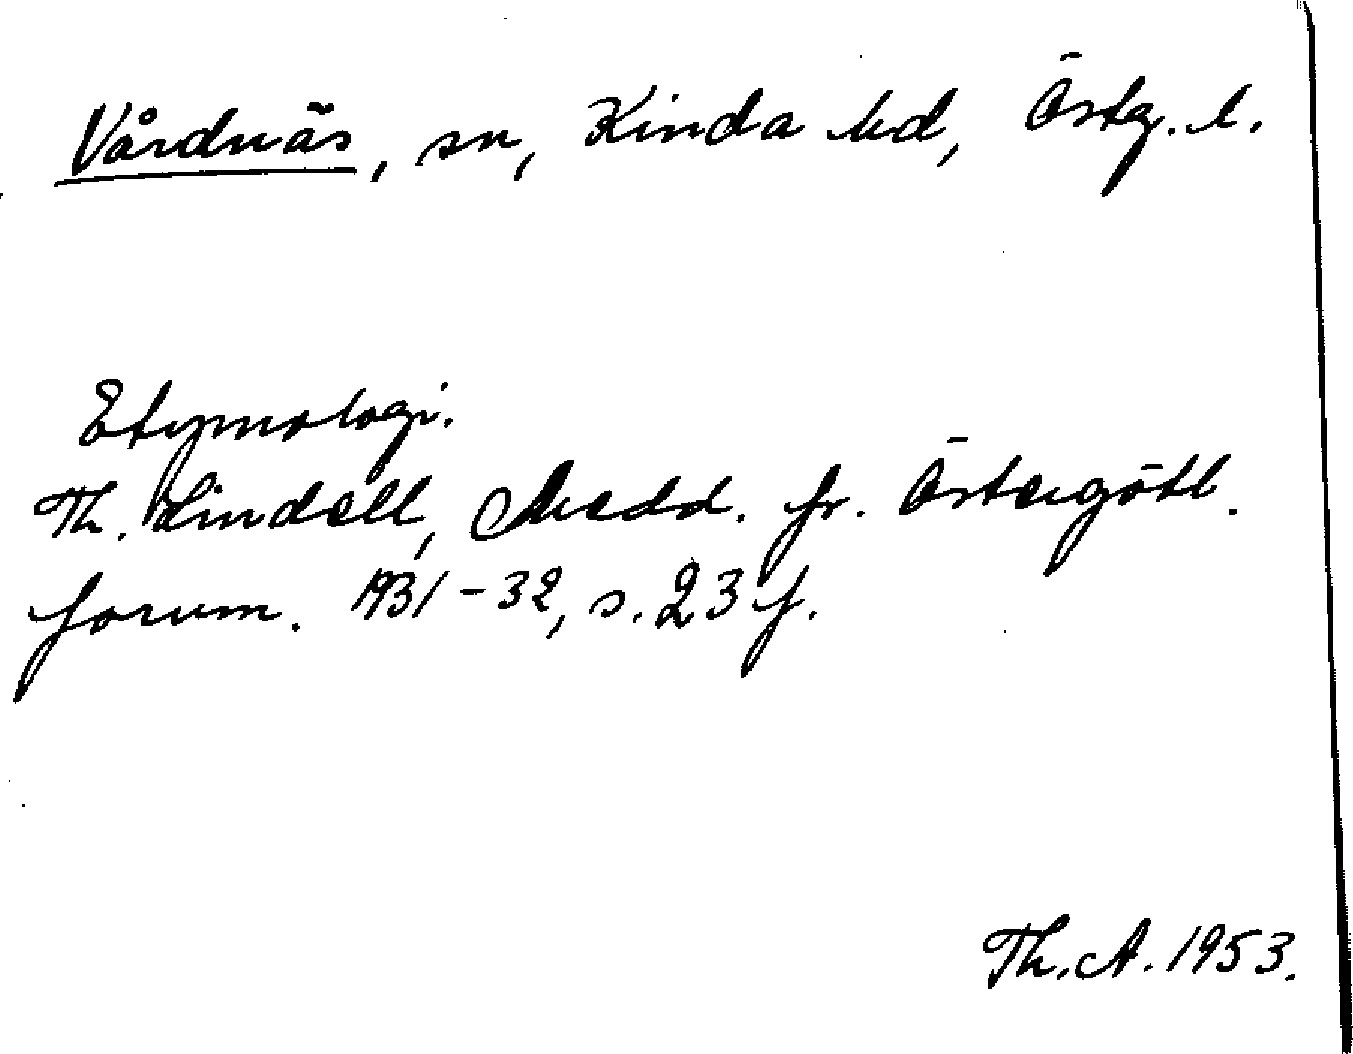 Vårdnäs, sn, Kinda hd, Östg. l.
Etymologi.
Th. Lindell, Medd. fr. Östergötl.
fornm. 1931-32, s. 23 f.
Th. A. 1953.